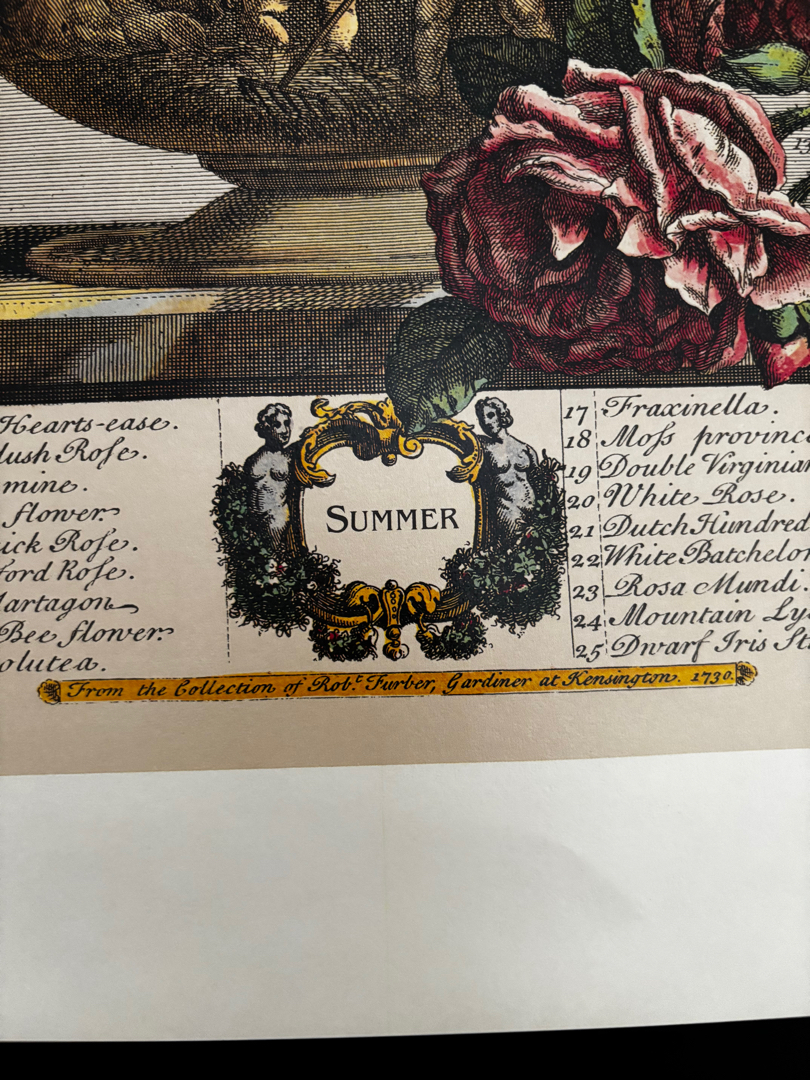 Hearts-ease.
lush Roſe.
mine.
flower.
ick Roſe.
ford Roſe.
Martagon
Bee flower.
olutea.
SUMMER
13
17 Fraxinella.
18 Moſs province
19 Double Virginian
20 White Rose.
21 Dutch Hundred
22 White Batchelor
23 Rosa Mundi.
24 Mountain Ly
25 Dwarf Iris St
From the Collection of Rob.t Furber, Gardiner at Kensington. 1730.